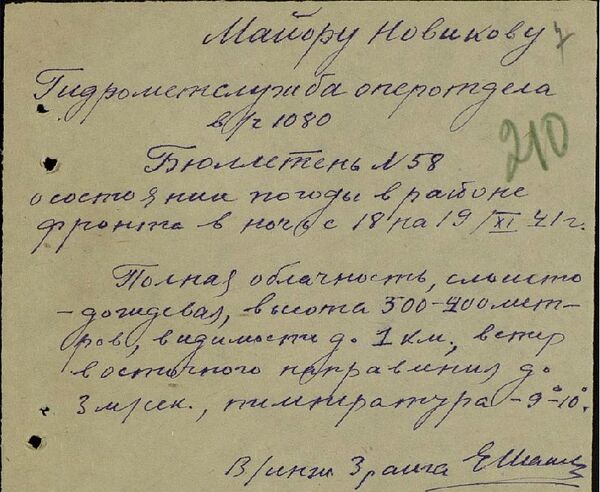 Майору Новикову 7
Гидрометслужба оперотдела
в/ч 1080
210
Бюллетень N 58
о состоянии погоды в районе
фронта в ночь с 18 на 19/XI 41 г.
Полная облачность, слоисто
-дождевая, высота 300-400 мет-
ров, видимость до 1 км, ветер
восточного направления до
3 м/сек., температура -9°-10°.
В/инж 3 ранга